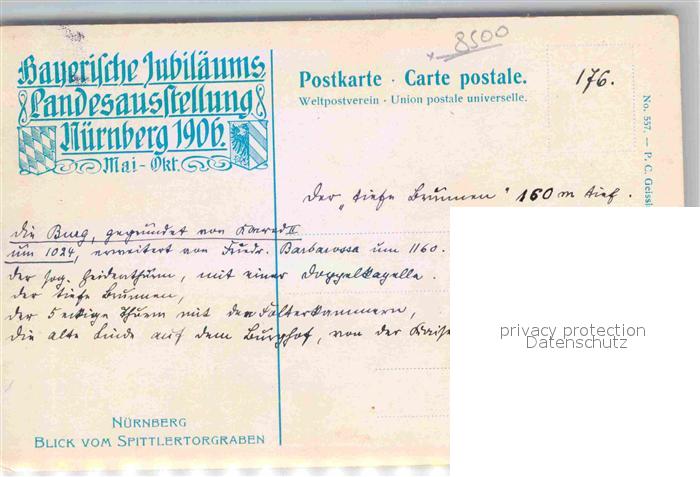 8500
Bayerische Jubiläums
Landesausstellung
Nürnberg 1906.
Mai-Okt.
Postkarte · Carte postale.
Weltpostverein · Union postale universelle.
176.
No. 557. — P. C. Geissl
Der „tiefe Brunnen" 160 m tief.
Die Burg, gegründet von Konrad II
um 1024, erweitert von Friedr. Barbarossa um 1160.
der sog. Heidenthurm, mit einer Doppelkapelle.
der tiefe Brunnen,
der 5 eckige Thurm mit den Folterkammern,
die alte Linde auf dem Burghof, von der Kaise
privacy protection
Datenschutz
NÜRNBERG
BLICK VOM SPITTLERTORGRABEN